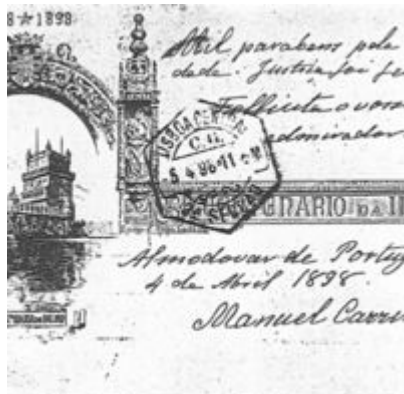 8 ☆ 1898
Mil parabens pela
dade. Justiça foi fe
Fellicita o voss
admirador
LISBOA CENTRAL
5 4 98 • 11
SECÇÃO
ENARIO DA I
Almodovar de Portug
4 de Abril 1898.
Manuel Carr